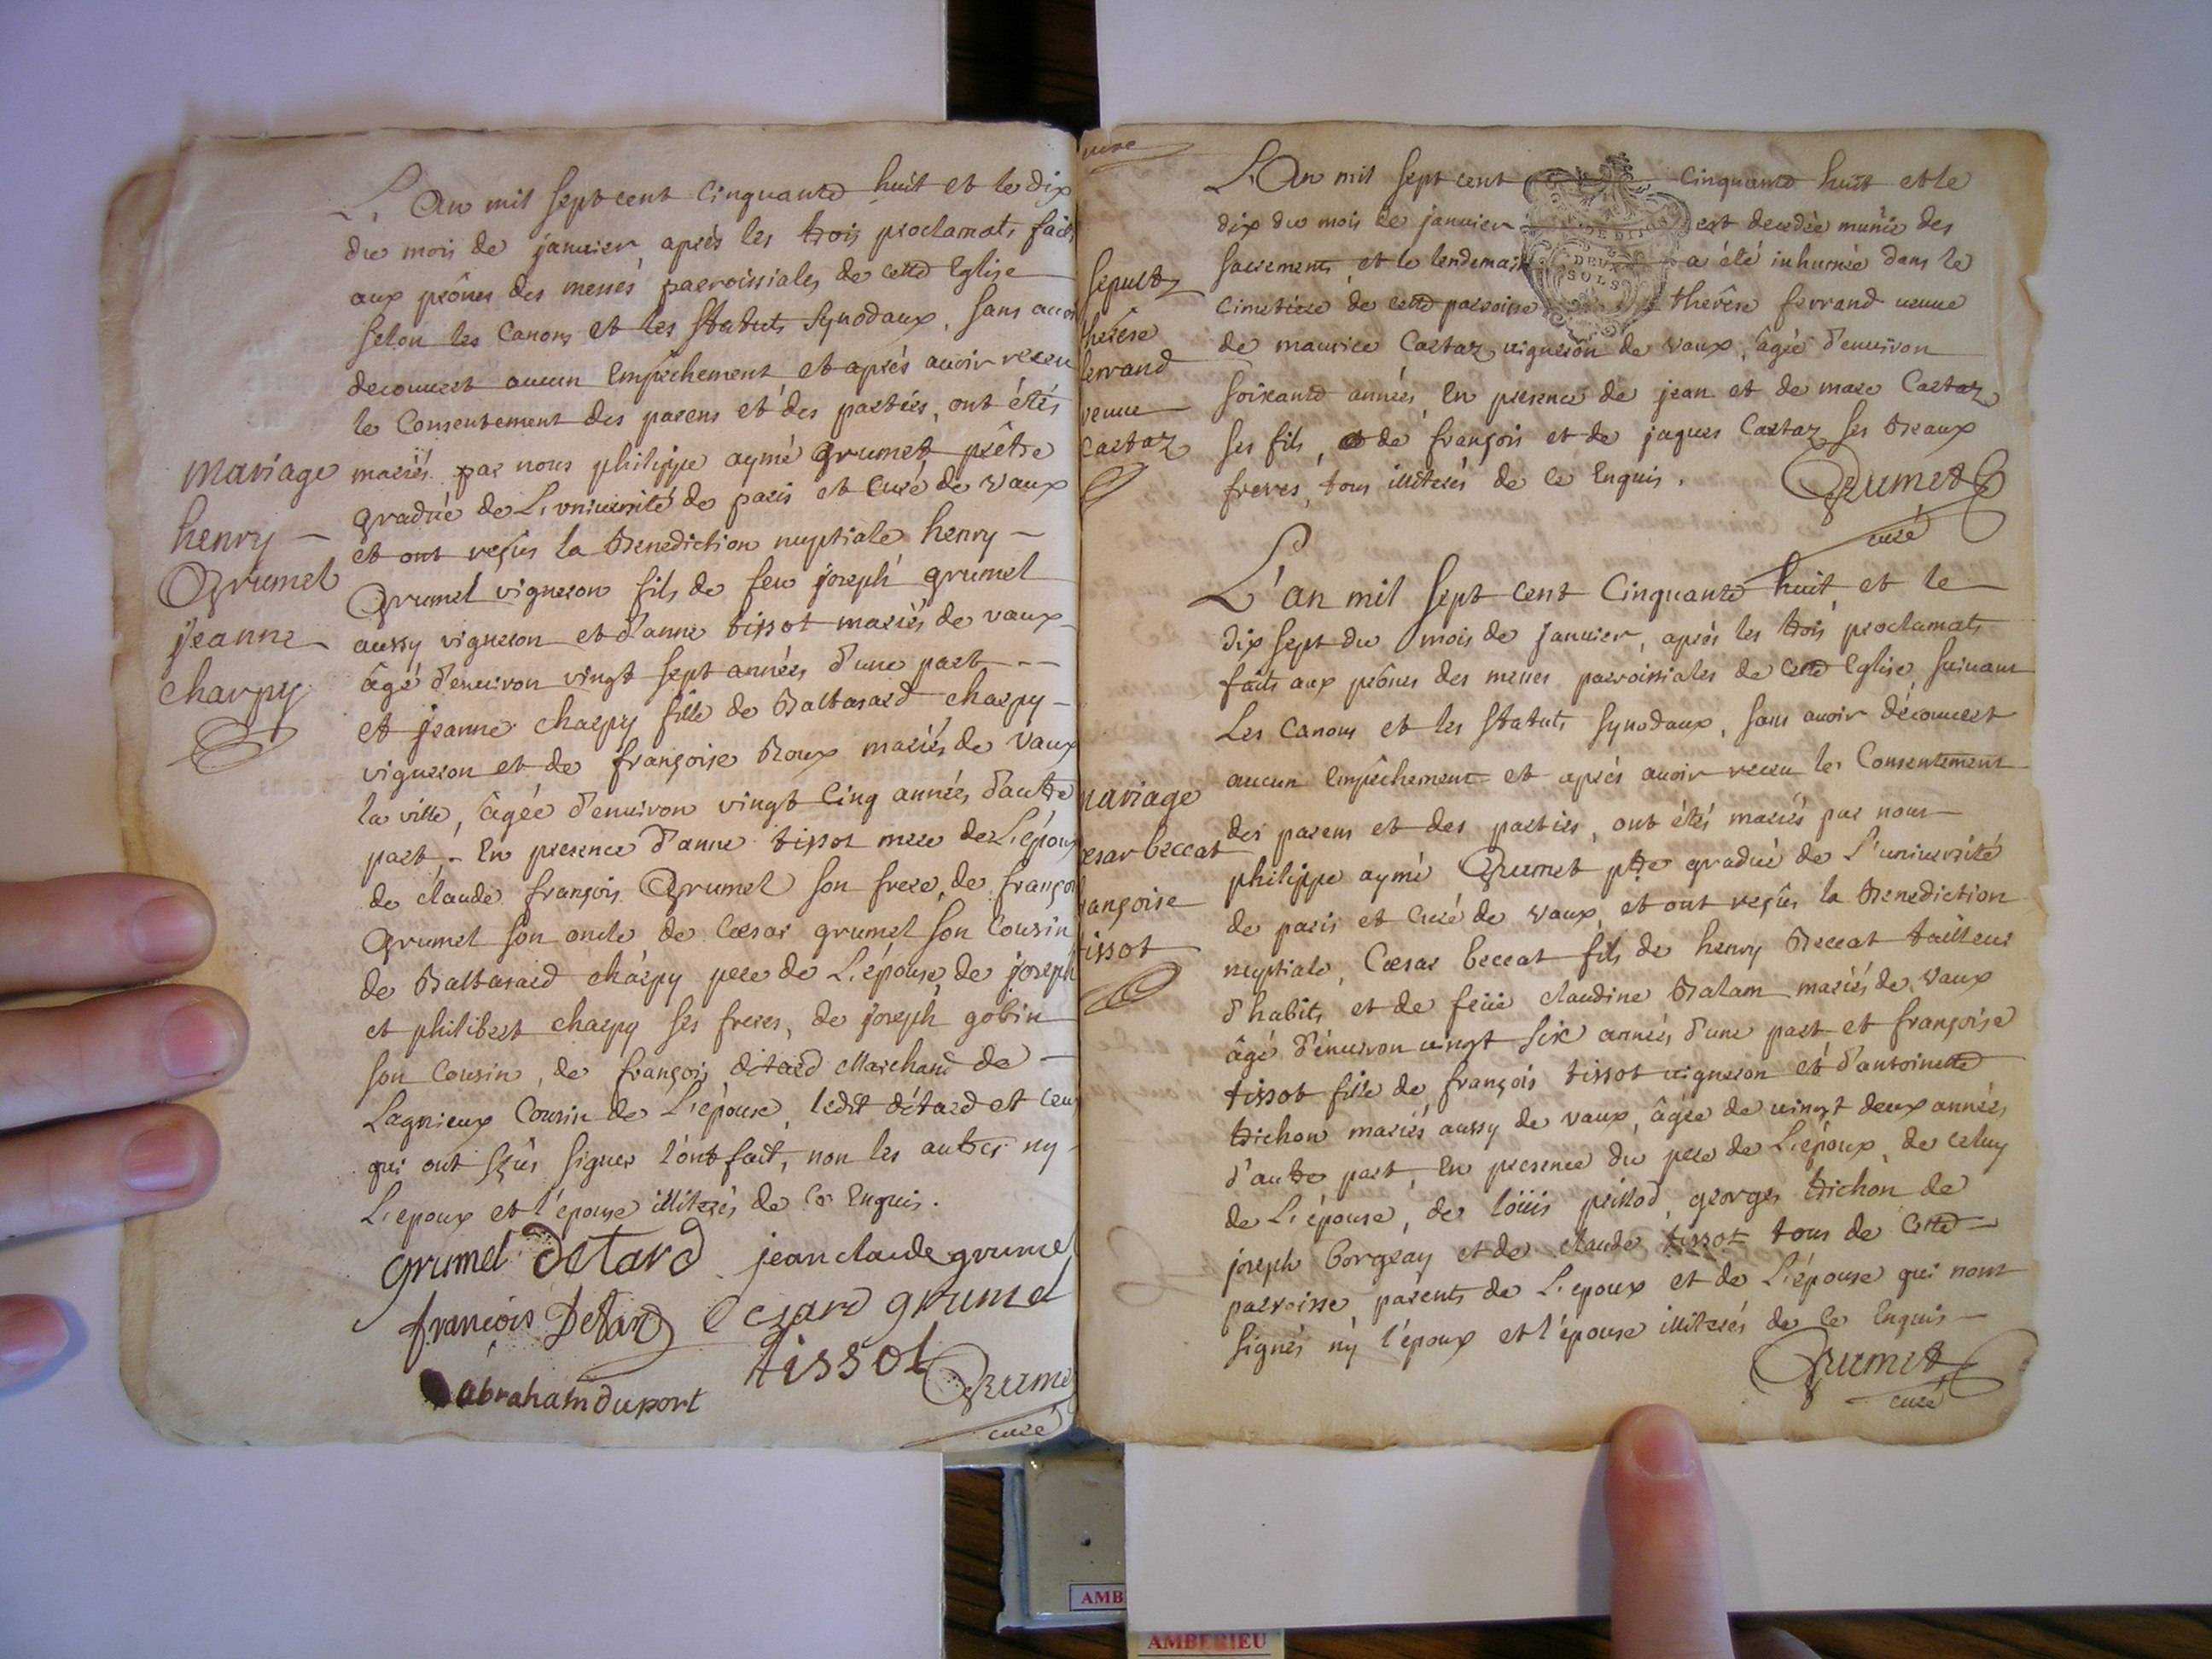 L'An mil sept cent cinquante huit et le dix
du mois de janvier, aprés les trois proclamats faits
aux prônes des messes parroissiales de cette Eglise
selon les Canons et les Statuts Synodaux, sans avoir
decouvert aucun Empêchement et aprés avoir receu
le Consentement des parens et des parties, ont étés
mariés par nous philippe aymé Grumet, prêtre
gradué de L'université de paris et Curé de Vaux
et ont reçûs la Benediction nuptiale henry
Grumel vigneron fils de feu joseph grumel
aussy vigneron et d'anne tissot mariés de vaux
âgé d'environ vingt sept années d'une part
et jeanne charpy fille de Baltasard charpy
vigneron et de françoise Roux mariés de Vaux
la ville, âgée d'environ vingt Cinq années d'autre
part. En presence d'anne tissot mere de L'époux
de claude françois Grumel son frere, de françois
Grumel son oncle, de Cæsar grumel son Cousin
de Baltasard charpy pere de L'épouse, de joseph
et philibert charpy ses freres, de joseph gobin
son Cousin, de françois détard Marchand de
Lagnieux Cousin de L'épouse, ledit détard et ceux
qui ont sçûs signer l'ont fait, non les autres ny
L'epoux et l'épouse illiterés de ce Enquis.
mariage
henry
Grumel
jeanne
charpy
grumel Detard jean claude grumel
françois Detard Cezard grumel
tissot
abraham duport
Grumet
curé
curé
L'An mil sept cent cinquante huit et le
dix du mois de janvier est decedée munie des
sacrements, et le lendemain a été inhumée dans le
Cimetiere de cette parroisse therêse ferrand veuve
de maurice Cartaz vigneron de vaux, âgée d'environ
soixante années, En presence de jean et de marc Cartaz
ses fils, de françois et de jaques Cartaz ses Beaux
freres, tous illiterés de ce Enquis.
DE DIJON
DEUX
SOLS
Grumet
curé
sepult
therêse
ferrand
veuve
Cartaz
L'an mil sept cent Cinquante huit et le
dix sept du mois de Janvier, aprés les trois proclamats
faits aux prônes des messes parroissiales de cette Eglise suivant
Les Canons et les Statuts Synodaux, sans avoir découvert
aucun Empêchement et aprés avoir receu le Consentement
des parens et des parties, ont étés mariés par nous
philippe aymé Grumet ptre gradué de L'université
de paris et Curé de Vaux, et ont reçûs la Benediction
nuptiale, Cæsar beccat fils de henry Beccat tailleur
d'habits et de feüe claudine Balam mariés de Vaux
âgé d'énviron vingt six années d'une part et françoise
tissot fille de françois tissot vigneron et d'antoinette
trichon mariés aussy de vaux, âgée de vingt deux années
d'autre part, En presence du pere de L'époux, de celuy
de L'épouse, de loüis prillod, georges trichon de
joseph borgeay et de claude tissot tous de cette
parroisse parents de L'epoux et de L'épouse qui n'ont
signés ny l'époux et l'épouse illiterés de ce Enquis
Grumet
curé
mariage
Cesar beccat
françoise
tissot
AMB
AMBERIEU